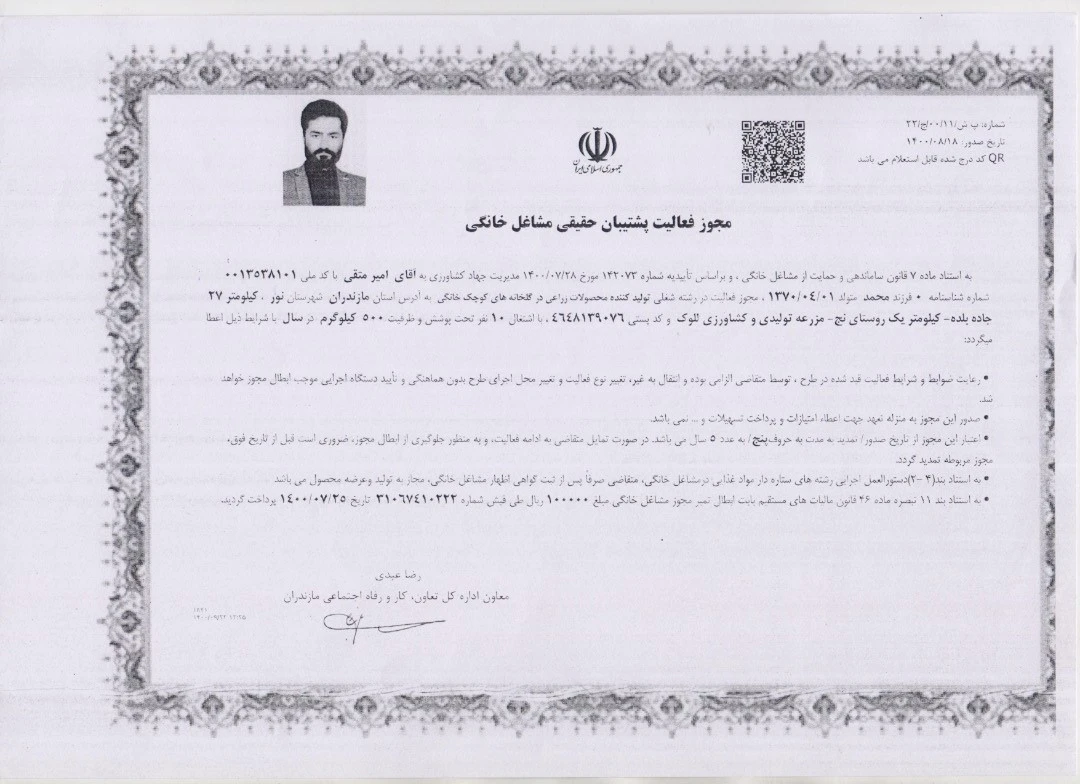 شماره: پ ش/۰۰/۱۱/ج/۲۲
تاریخ صدور: ۱۴۰۰/۰۸/۱۸
QR کد درج شده قابل استعلام می باشد
جمهوری اسلامی ایران
مجوز فعالیت پشتیبان حقیقی مشاغل خانگی
به استناد ماده ۷ قانون ساماندهی و حمایت از مشاغل خانگی ، و براساس تأییدیه شماره ۱۴۲۰۷۳ مورخ ۱۴۰۰/۰۷/۲۸ مدیریت جهاد کشاورزی به آقای امیر متقی با کد ملی ۰۰۱۳۵۳۸۱۰۱
شماره شناسنامه ۰ فرزند محمد متولد ۱۳۷۰/۰۴/۰۱ ، مجوز فعالیت در رشته شغلی تولید کننده محصولات زراعی در گلخانه های کوچک خانگی به آدرس استان مازندران شهرستان نور ، کیلومتر ۲۷
جاده بلده- کیلومتر یک روستای نج- مزرعه تولیدی و کشاورزی للوک و کد پستی ۴۶۴۸۱۳۹۰۷۶ ، با اشتغال ۱۰ نفر تحت پوشش و ظرفیت ۵۰۰ کیلوگرم در سال با شرایط ذیل اعطا
میگردد:
• رعایت ضوابط و شرایط فعالیت قید شده در طرح ، توسط متقاضی الزامی بوده و انتقال به غیر، تغییر نوع فعالیت و تغییر محل اجرای طرح بدون هماهنگی و تأیید دستگاه اجرایی موجب ابطال مجوز خواهد
شد.
• صدور این مجوز به منزله تعهد جهت اعطاء امتیازات و پرداخت تسهیلات و ... نمی باشد.
• اعتبار این مجوز از تاریخ صدور/ تمدید به مدت به حروف پنج/ به عدد ۵ سال می باشد. در صورت تمایل متقاضی به ادامه فعالیت، و به منظور جلوگیری از ابطال مجوز، ضروری است قبل از تاریخ فوق،
مجوز مربوطه تمدید گردد.
• به استناد بند(۳ -۲)دستورالعمل اجرایی رشته های ستاره دار مواد غذایی درمشاغل خانگی، متقاضی صرفاً پس از ثبت گواهی اظهار مشاغل خانگی، مجاز به تولید وعرضه محصول می باشد
• به استناد بند ۱۱ تبصره ماده ۴۶ قانون مالیات های مستقیم بابت ابطال تمبر مجوز مشاغل خانگی مبلغ ۱۰۰۰۰۰ ریال طی فیش شماره ۳۱۰۶۷۴۱۰۲۲۲ تاریخ ۱۴۰۰/۰۷/۲۵ پرداخت گردید.
رضا عبدی
معاون اداره کل تعاون، کار و رفاه اجتماعی مازندران